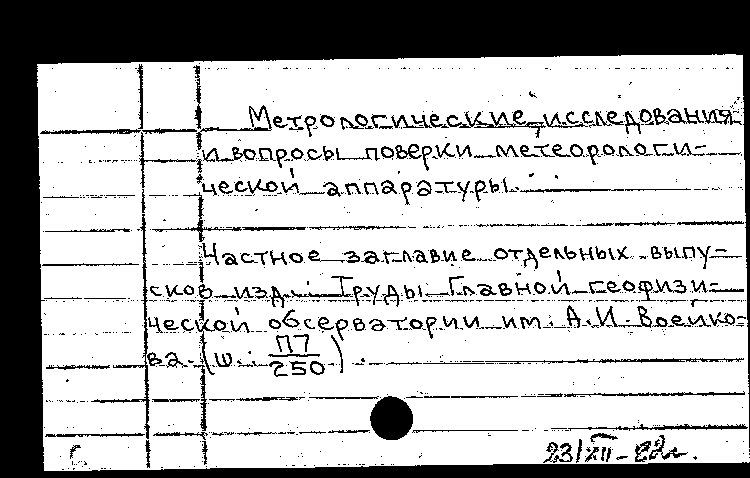 Метрологические исследования
и вопросы поверки метеорологи-
ческой аппаратуры.
Частное заглавие отдельных выпу-
сков изд.: Труды Главной геофизи-
ческой обсерватории им. А.И. Воейко-
ва. (ш.: П7/250).
23/XII-82г.